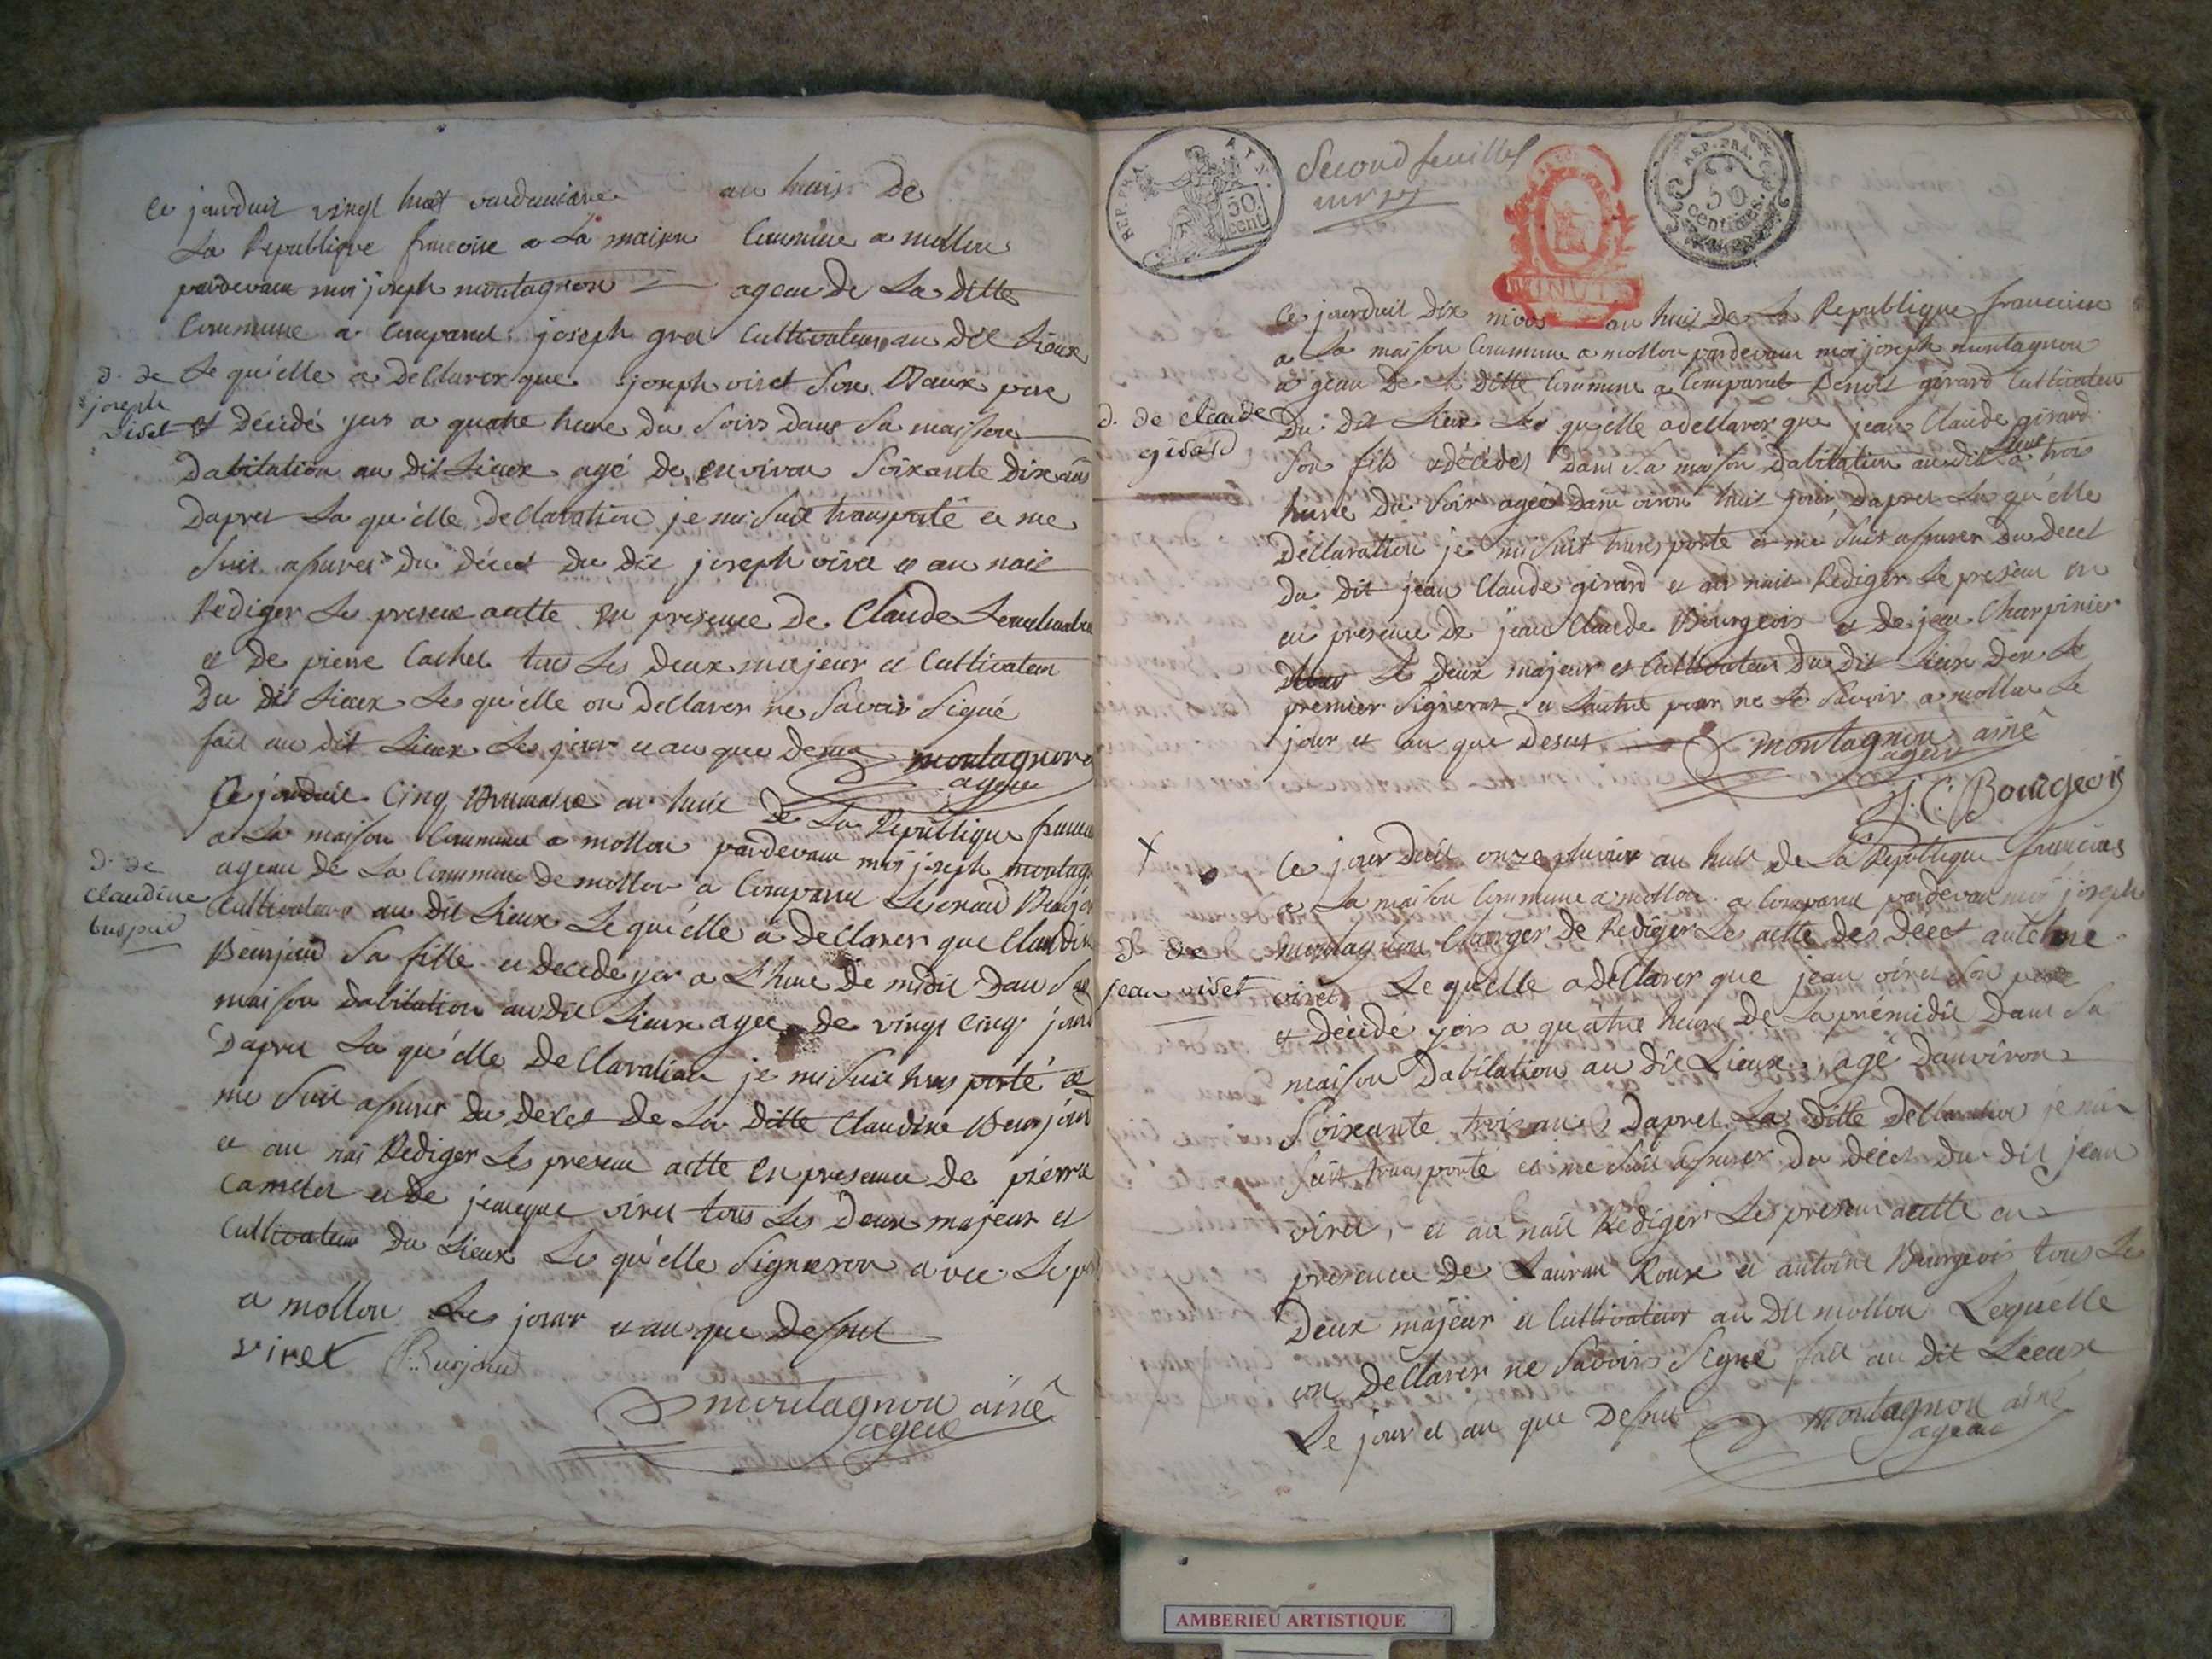 Ce jourduit vingt huit vendemiaire an huis de
La Republique francoise a La maison Commune a mollon
pardevan moi joseph montagnon agean de La ditte
Commune a Comparut joseph grel Cultivateur au dit Lieux
Le qu'elle a declarer que joseph viret son Baux pere
d. de
joseph
viret
et décidé yer a quatre heure du Soirs dans Sa maisson
dabitation au dit Lieux agé de environ Soixante dix ans
daprес La qu'elle declaration je mi suit transporté et me
Suis assurer du décet du dit joseph viret et an nait
Rediger Le presens actte en presence de Claude
et de pierre Cachet tous Les deux majeur et Cultivateur
du dit Lieux Les qu'elle on declarer ne Savoir Signé
fait au dit Lieux Les jour et an que desus montagnon
agean
Ce jourduit Cinq Brumaire an huit de La Republique
a La maison Commune a mollon pardevan moi joseph
agean de La Commune de mollon a Comparu
d. de
claudine
Cultivateur au dit Lieux Le qu'elle a declarer que
Beurjoud Sa fille et decede yer a L'hure de midit dans Sa
maison dabitation au dit Lieux agee de vingt Cinq jours
dapres La qu'elle declaration je mi suit trans porté et
me Suit assurer du decet de La ditte Claudine Beurjoud
et an nai Rediger Les presens actte en presence de pierre
Camelet et de viret tous Les deux majeur et
Cultivateur du Lieux Les qu'elle Signeron avec Le
a mollon Les jour et an que desus
viret Burjoud
montagnon ainé
agean
REP. FRA. 50 cent
Second feuillet
REP. FRA. 50 Centimes
Ce jourduit dix nivos an huit de La Republique francoise
a La maison Commune a mollon pardevan moi joseph montagnon
agean de La ditte Commune a Comparut Benoit girard Cultivateur
d. de claude
girard
du dit Lieux Les qu'elle a declarer que jean Claude girard
Son fils a décédes dans Sa maison dabitation au dit Lieux a trois
heure du Soir ageé danviron huit jour, dapres La qu'elle
declaration je mi suit transporté et me Suis assurer du decet
du dit jean Claude girard et an nait Rediger Le presens
en presence de jean Claude Bourgeois et de jean Charpinier
Le deux majeur et Cultivateur du dit Lieux don Le
premier Signerat et Lautre pour ne Le Savoir a mollon Le
jour et an que desus montagnon ainé
agean
J. C. Bourgeois
X
Ce jourduit onze pluviose an huit de La Republique francoise
a La maison Commune a mollon a Comparu pardevan moi joseph
montagnon Charger de Rediger Les actte des decet antelme
d. de
jean viret
viret Le qu'elle a declarer que jean viret Son pere
et décidé yer a quatre heure de Laprémidit dans Sa
maison dabitation au dit Lieux agé danviron
Soixante trois ans daprес La ditte declaration je mi
Suit transporté et me Suis assurer du décet du dit jean
viret, et an nait Rediger Les presens actte en
presence de Lauran Roux et antoine Bourgeois tous Les
deux majeur et Cultivateur au dit mollon Lequelle
on declarer ne Savoirs Signé fait au dit Lieux
Le jour et an que desus montagnon ainé
agean
AMBERIEU ARTISTIQUE